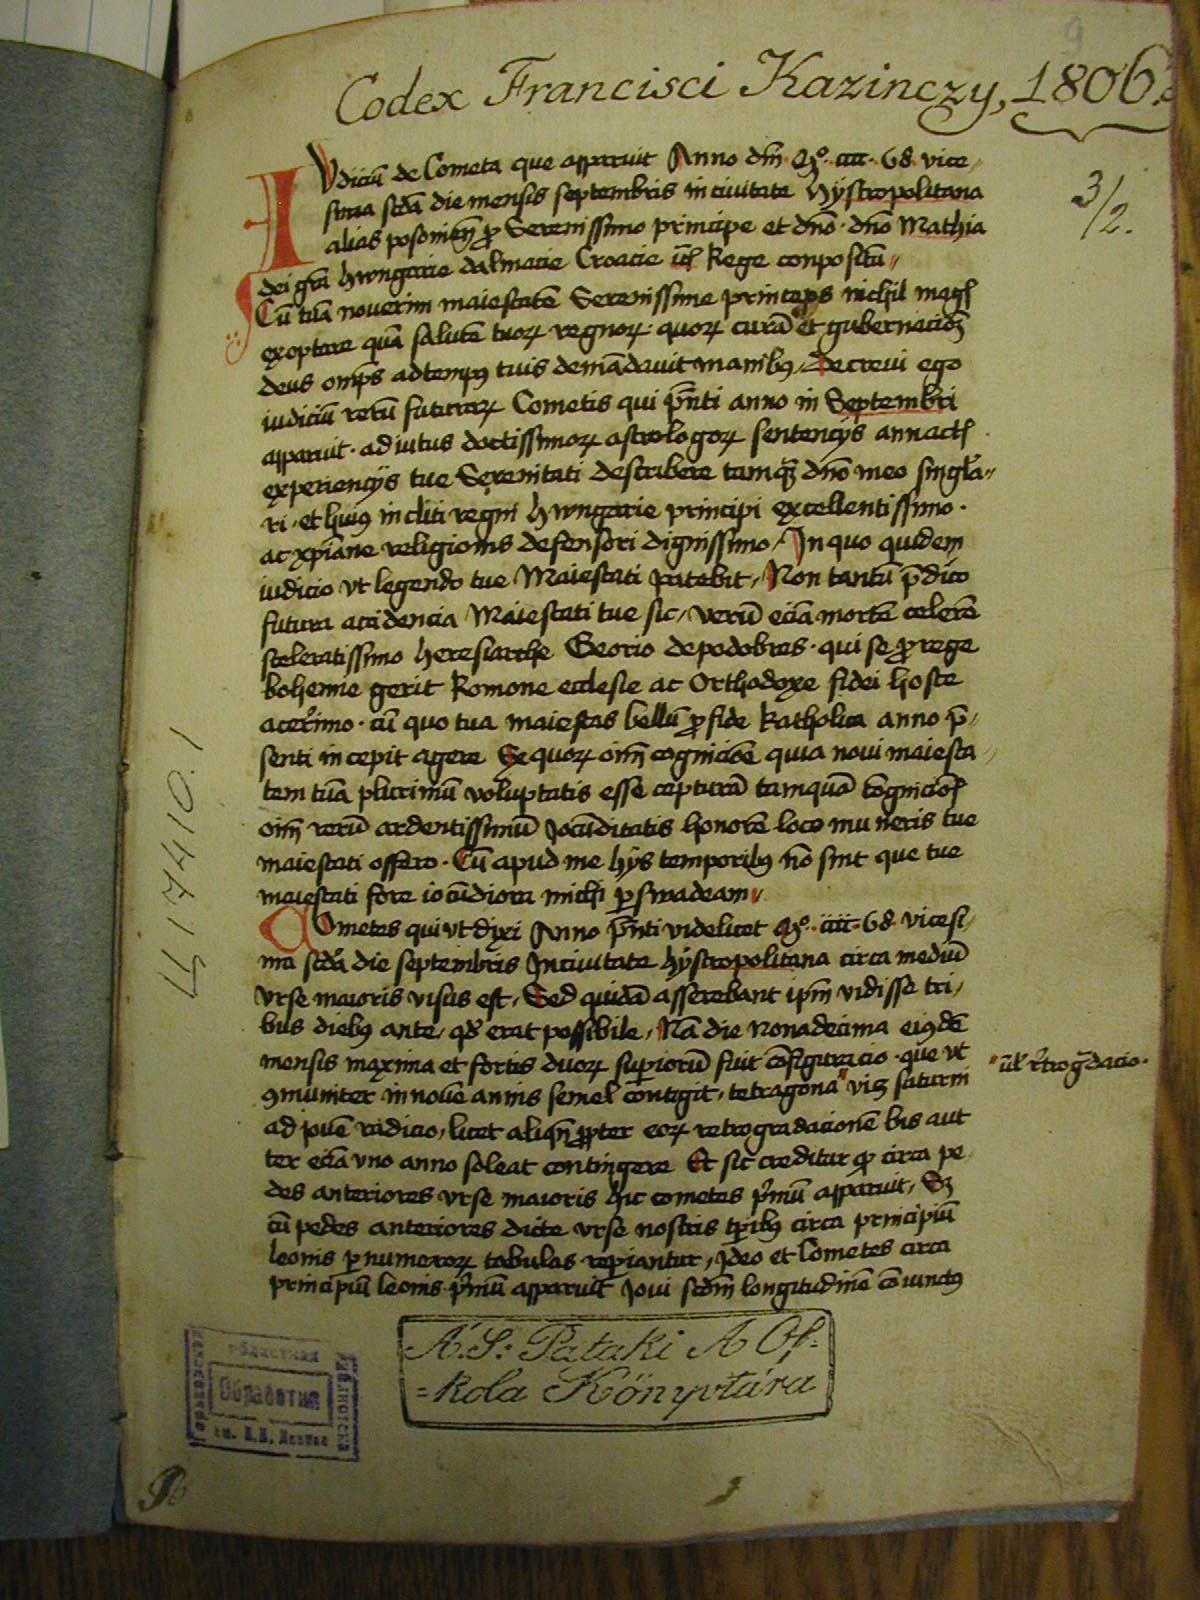 Codex Francisci Kazinczy, 1806.
3/2.
IVdiciū de Cometa que apparuit Anno dm̄ Mº. cccc. 68. vice
sima scđa die mensis septembris in ciuitate hystropolitana
alias posonien̄ ꝓ Serenissimo principe et dn̄o dn̄o Mathia
dei gr̄a hwngarie dalmacie Croacie Rege conpositū
Cū tuā nouerim maiestatē Serenissime princeps nichil
exoptare quā salutē tuoꝝ regnoꝝ quoꝝ curā et
deus omp̄s ad tempus tuis demādauit manibꝫ, Decreui ego
iudiciū rerū futuraꝝ Cometis qui p̄nti anno in Septembri
apparuit. adiutus doctissimoꝝ astrologoꝝ sentencijs
experiencijs tue Serenitati describere tamqꝫ dn̄o meo singla
ri. et huiꝯ incliti regni hwngarie principi excellentissimo.
ac xp̄iane religionis defensori dignissimo, In quo quidem
iudicio vt legendo tue Maiestati patebit, Non tantū p̄dico
futura accidencia Maiestati tue sic, verū eciā mortē celerē
sceleratissimo heresiarche Georio de podobres. qui se ꝓ rege
bohemie gerit Romone ecclesie ac Orthodoxe fidei hoste
acerimo. cū quo tua maiestas bellū ꝓ fide katholica anno p̄
senti incepit agere Se quoꝝ oim̄ quia noui maiesta
tem tuā plurimū voluptatis esse capturā tamquā
oim̄ rerū ardentissimū Jocūditatis honorē loco muneris tue
maiestati offero. Cū apud me hijs temporibꝫ nō sint que tue
maiestati fore iocūdiora michi ꝑswadeam
Cometes qui vt dixi Anno p̄nti videlicet Mº. cccc. 68. vicesi
ma scđa die septembris In ciuitate hystropolitana circa mediū
vrse maioris visus est, Sed quidā asserebant ipm̄ vidisse tri
bus diebꝫ ante, qđ erat possibile, Nā die nonadecima eiusdē
mensis maxima et fortis duoꝝ superiorū fuit cōfiguracio. que vt
ꝯmuniter in nouē annis semel contigit, tetragona viꝫ saturni
vl' r̄trogḡdacio.
ad jouē radicio, licet aliqn̄ ꝓpter eoꝝ retrogradacionē bis aut
ter eciā vno anno soleat contingere Et sic creditur ꝙ circa pe
des anteriores vrse maioris hic cometes p̄mū apparuit, Sꝫ
cū pedes anteriores dicte vrse nostris tp̄ibꝫ circa principiū
leonis ꝑ numeroꝝ tabulas repiantur, Jdeo et Cometes circa
principiū leonis p̄mū apparuit Joui scđm longitudinē cōiunctꝯ
A'. S: Pataki A Of-
=kola Könyvtára
Обработка